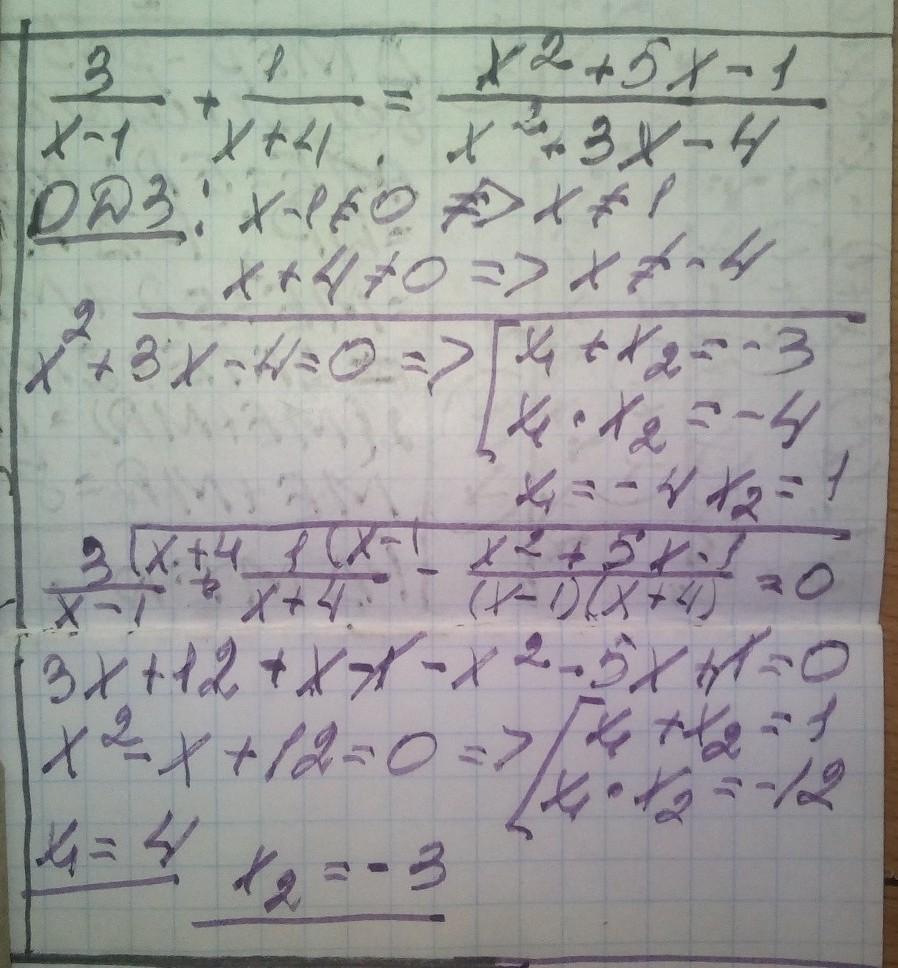 3/(x-1) + 1/(x+4) = (x²+5x-1)/(x²+3x-4)
ОДЗ: x-1≠0 ≠> x≠1
x+4≠0 => x≠-4
x²+3x-4=0 => [x₁+x₂=-3
x₁·x₂=-4
x₁=-4 x₂=1
3(x+4/(x-1) + 1(x-1/(x+4) - (x²+5x-1)/((x-1)(x+4)) =0
3x+12+x-1-x²-5x+1=0
x²-x+12=0 => [x₁+x₂=1
x₁·x₂=-12
x₁=4 x₂=-3